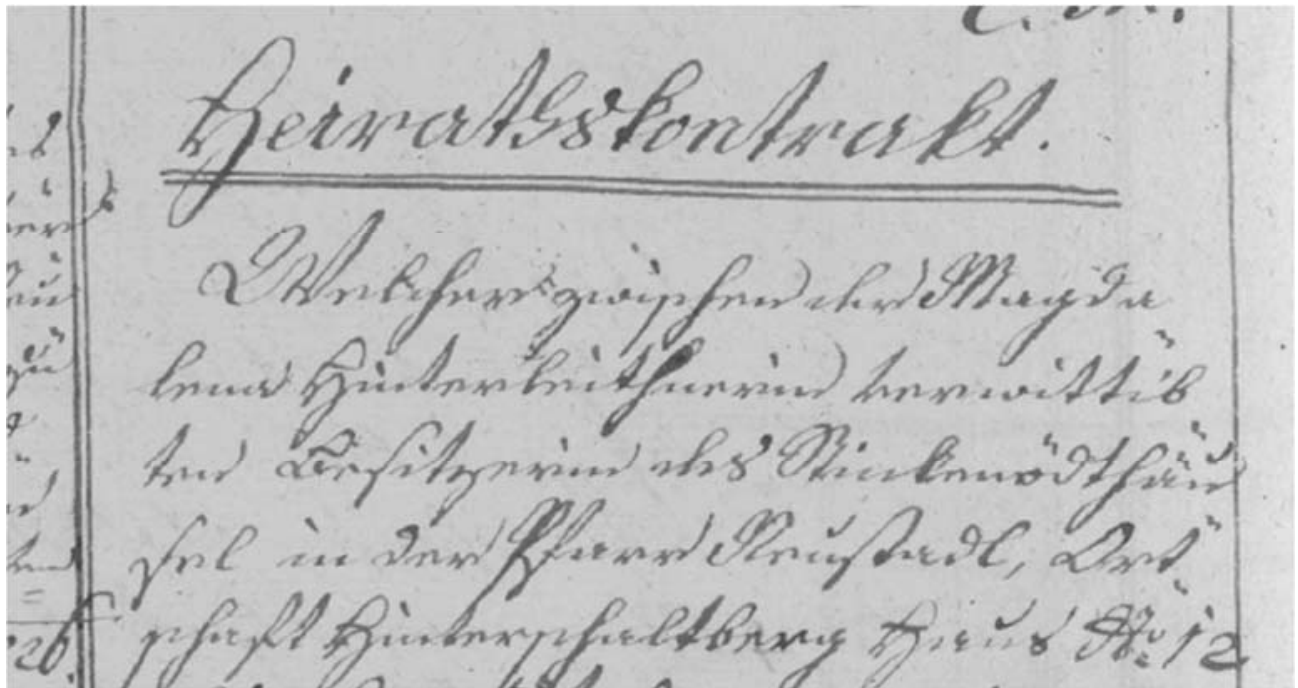 Heirathskontrakt.
Welcher zwischen der Magda
lena Hinterleithnerin verwittib
ten Besitzerin des Stinkenödthäu
sel in der Pfarr Neustadl, Ort
schaft Hinterschaltberg Haus No. 12